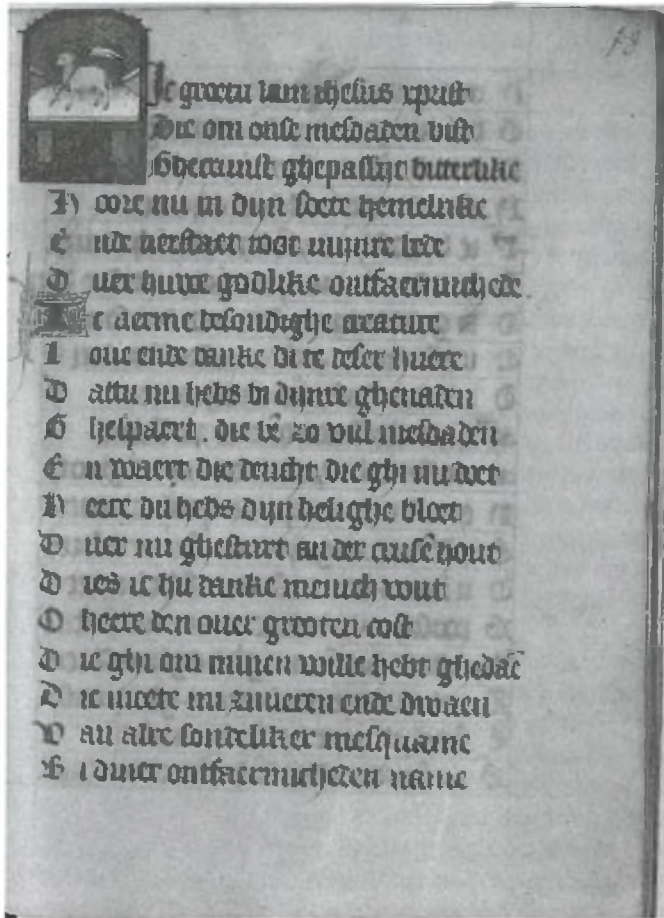 Ic groetu lam ihesus xpust
Die om onse mesdaden bist
Ghecruust ghepassijt bitterlike
Hoore nu in dijn soete hemelrike
Ende verstaet toot mijnre bede
Duer huwe godlike ontfaermichede
Ic aerme besondighe creature
Loue ende danke di te deser huere
Dattu mi hebs bi dijnre ghenaden
Ghespaert. die bē zo vul mesdaden
En waert die deucht die ghi mi doet
Heere du hebs dijn helighe bloet
Duer mi ghesturt an der crusē hout
Dies ic hu danke menich vout
O heere den ouer grooten cost
Die ghi om minen wille hebt ghedaē
Die moete mi zuueren ende dwaen
Van alre sondeliker mesquame
Bi diuer ontfaermicheden name